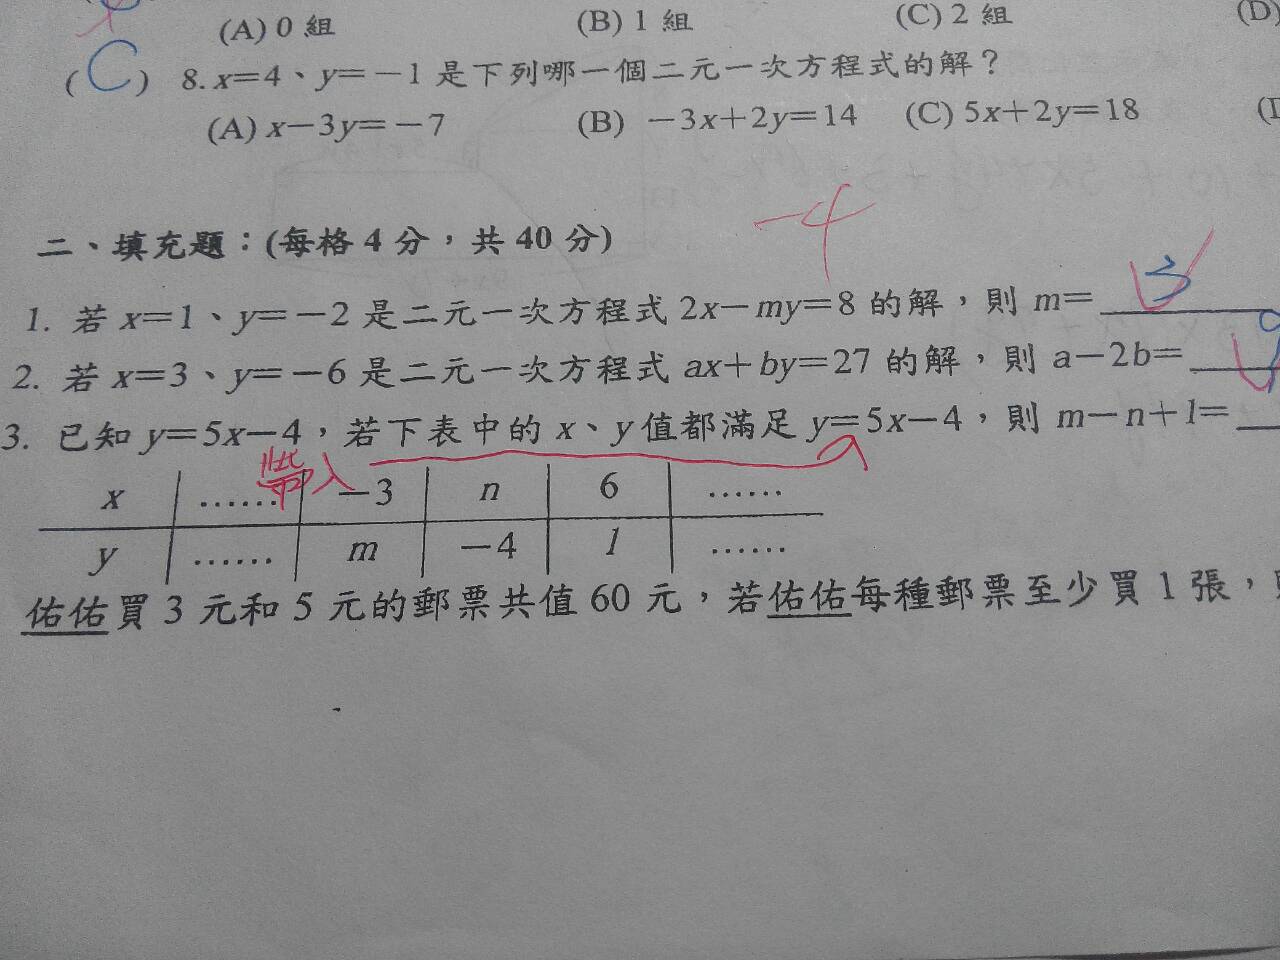 (A) 0 組 (B) 1 組 (C) 2 組 (D)
( C ) 8. x=4、y=-1 是下列哪一個二元一次方程式的解？
(A) x-3y=-7 (B) -3x+2y=14 (C) 5x+2y=18
-4
二、填充題：(每格 4 分，共 40 分)
1. 若 x=1、y=-2 是二元一次方程式 2x-my=8 的解，則 m= 3
2. 若 x=3、y=-6 是二元一次方程式 ax+by=27 的解，則 a-2b= 9
3. 已知 y=5x-4，若下表中的 x、y 值都滿足 y=5x-4，則 m-n+1=
帶入
x …… -3 n 6 ……
y …… m -4 1 ……
佑佑買 3 元和 5 元的郵票共值 60 元，若佑佑每種郵票至少買 1 張，